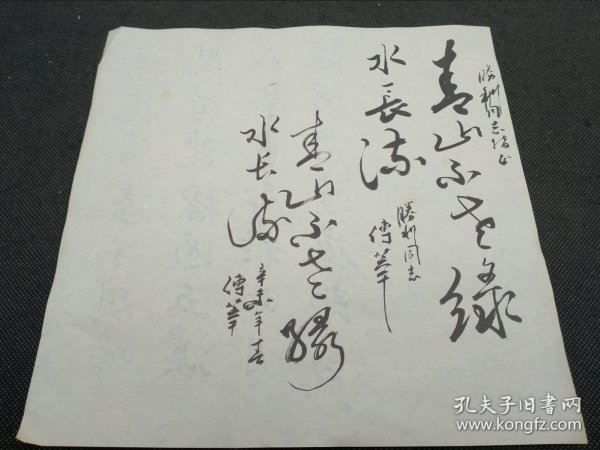 胜利同志指正
青山不老绿
水長流
勝利同志
傅華
青山不老绿
水长流
辛未年春
傅華
孔夫子旧书网
www.kongfz.com